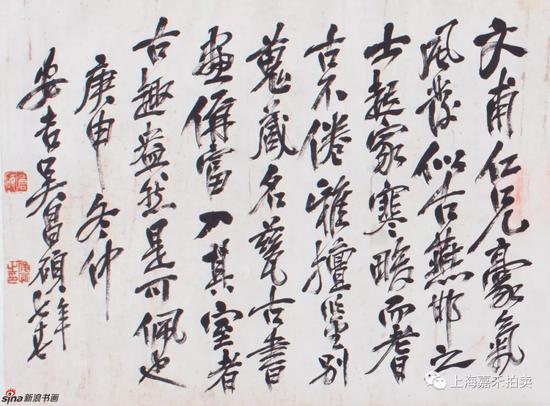 文甫仁兄豪氣
風發似古燕邯之
士起家寒畯而耆
古不倦雅擅鑒別
蒐藏名甆古書
畫侔富入其室者
古趣盎然是可佩也
庚申 冬仲
安吉吳昌碩年七十七
sina新浪书画
上海嘉禾拍卖